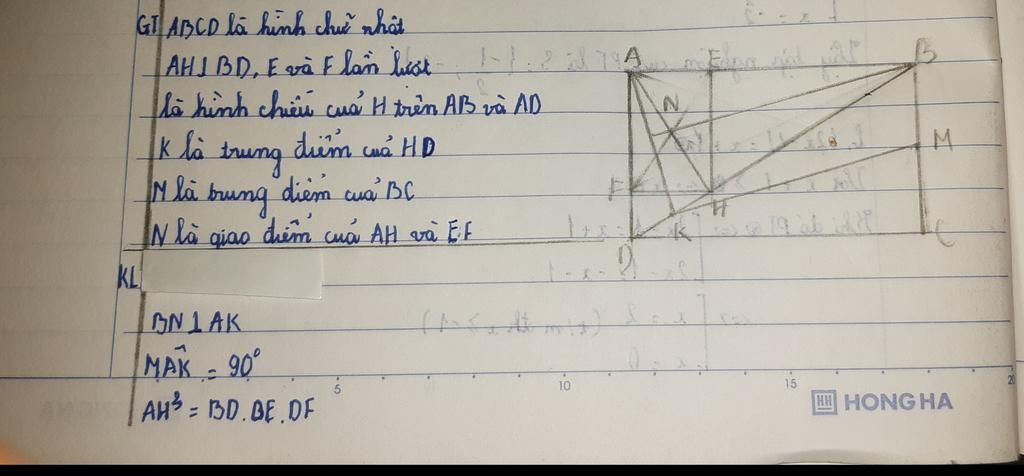 GT ABCD là hình chữ nhật
AH⊥BD, E và F lần lượt
là hình chiếu của H trên AB và AD
K là trung điểm của HD
M là trung điểm của BC
N là giao điểm của AH và EF
KL
BN⊥AK
MÂK = 90°
AH³ = BD.BE.DF
A
E
B
N
M
F
H
K
D
C
5
10
15
20
HH HONG HA